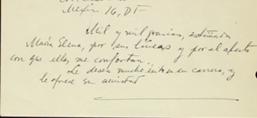 México 16, D.F.
Mil y mil gracias, estimada
María Elena, por sus líneas y por el afecto
con que ellas me confortan.
Le deseo mucho éxito en su carrera, y
le ofrece su amistad